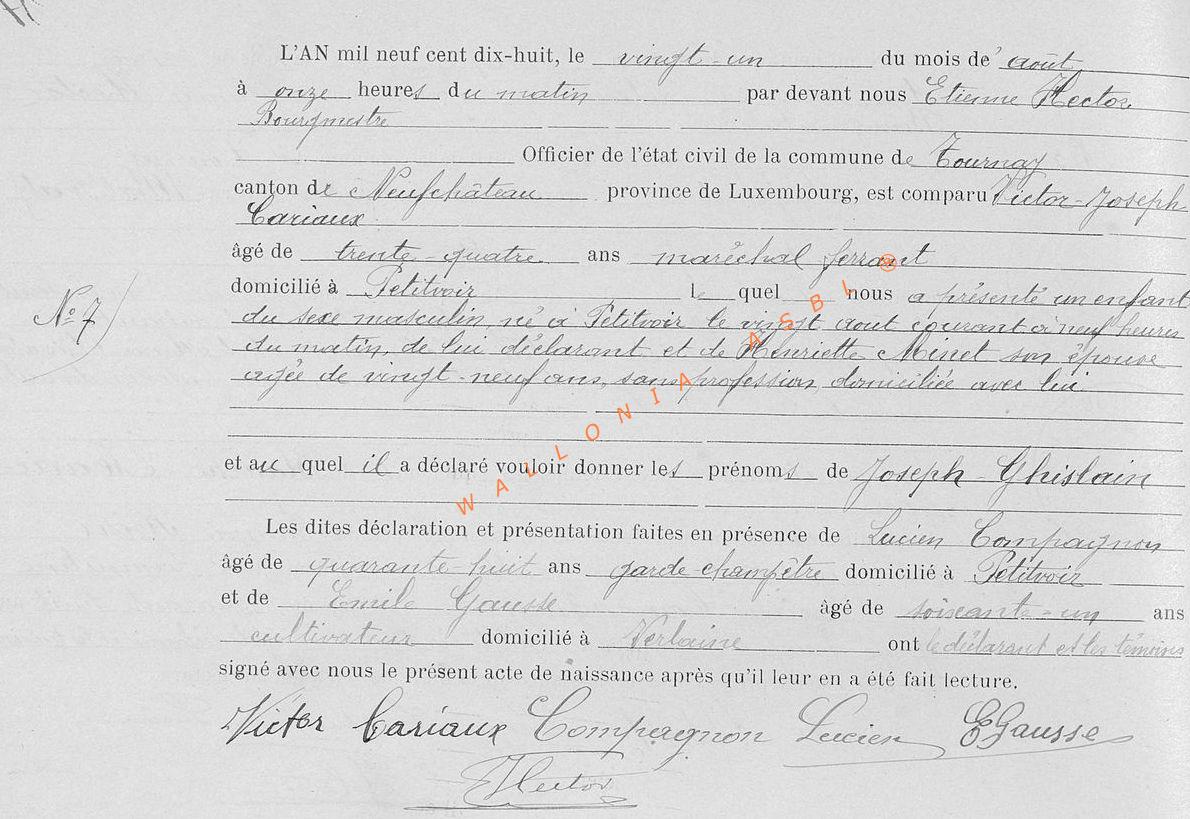 L'AN mil neuf cent dix-huit, le vingt-un du mois de août
à onze heures du matin par devant nous Etienne Hector
Bourgmestre
Officier de l'état civil de la commune de Tournay
canton de Neufchâteau province de Luxembourg, est comparu Victor-Joseph
Cariaux
âgé de trente-quatre ans maréchal ferrant
domicilié à Petitvoir lequel nous a présenté un enfant
N° 7
du sexe masculin, né à Petitvoir le vingt aout courant à neuf heures
du matin, de lui déclarant et de Henriette Minet son épouse
agée de vingt-neuf ans, sans profession, domiciliée avec lui
et auquel il a déclaré vouloir donner les prénoms de Joseph-Ghislain
Les dites déclaration et présentation faites en présence de Lucien Compagnon
âgé de quarante-huit ans garde-champêtre domicilié à Petitvoir
et de Emile Gausse âgé de soixante-un ans
cultivateur domicilié à Verlaine ont le déclarant et les témoins
signé avec nous le présent acte de naissance après qu'il leur en a été fait lecture.
Victor Cariaux Compagnon Lucien E Gausse
E Hector
WALLONIA ASBL ®